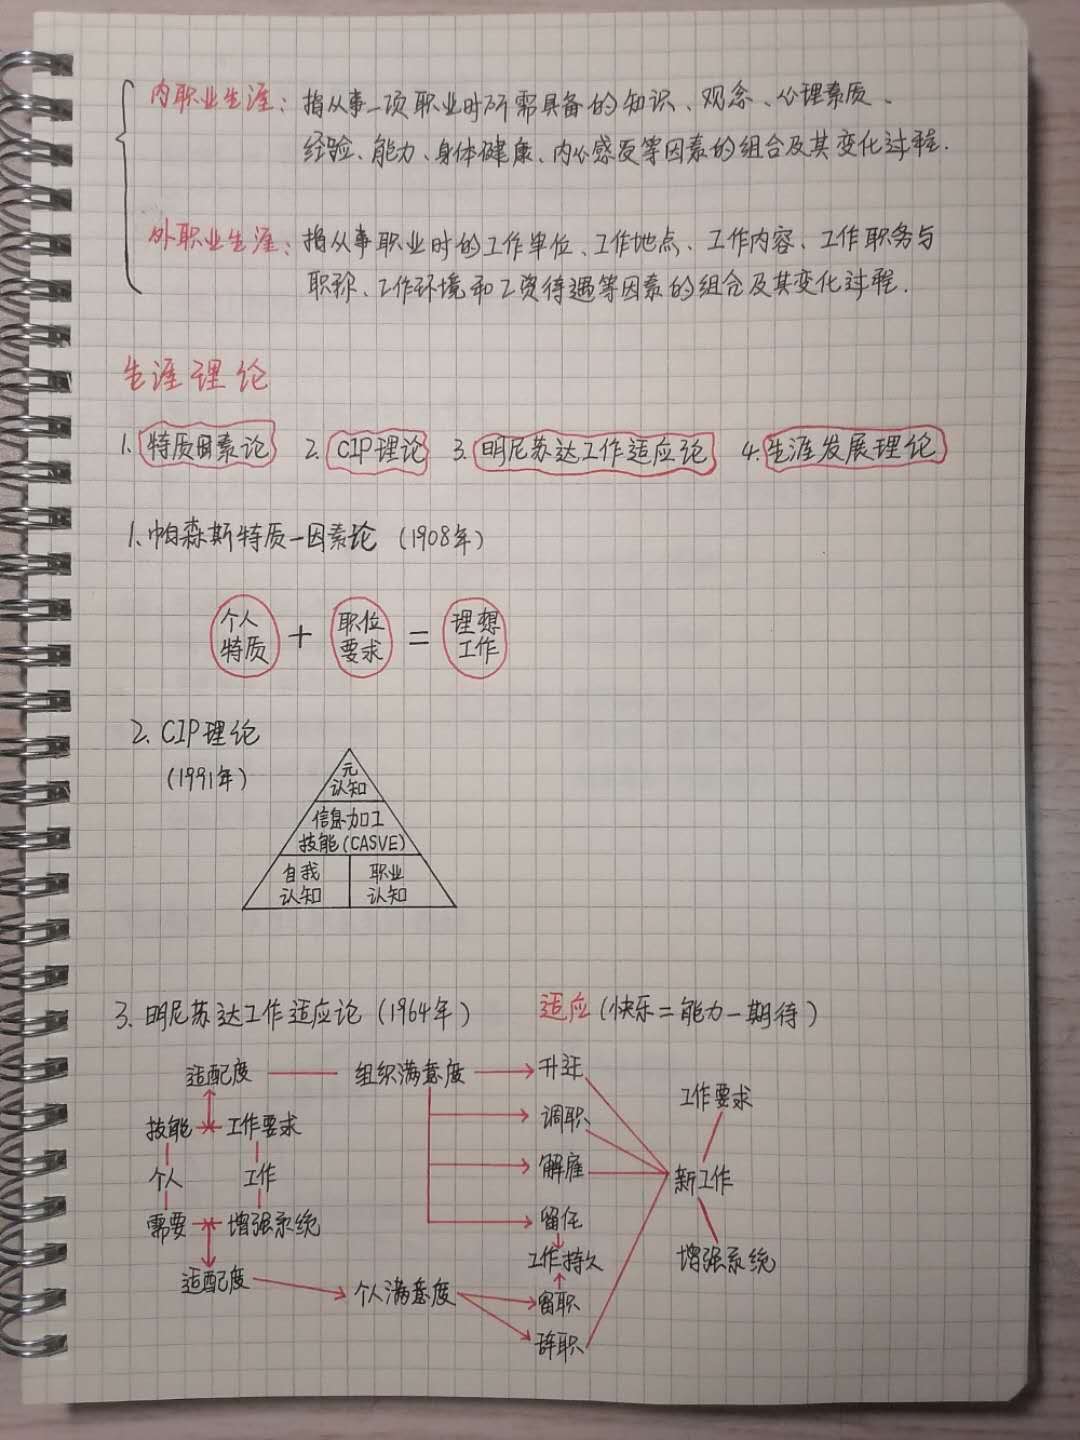 内职业生涯：指从事一项职业时所需具备的知识、观念、心理素质、
经验、能力、身体健康、内心感受等因素的组合及其变化过程.
外职业生涯：指从事职业时的工作单位、工作地点、工作内容、工作职务与
职称、工作环境和工资待遇等因素的组合及其变化过程.
生涯理论
1. 特质因素论 2. CIP理论 3. 明尼苏达工作适应论 4. 生涯发展理论
1、帕森斯特质－因素论（1908年）
个人 职位 理想
特质 + 要求 = 工作
2. CIP理论
（1991年）
元
认知
信息加工
技能（CASVE）
自我 职业
认知 认知
3. 明尼苏达工作适应论（1964年） 适应（快乐＝能力－期待）
适配度 组织满意度 升迁
工作要求
技能 工作要求 调职
个人 工作 解雇 新工作
需要 增强系统 留任
工作持久 增强系统
适配度 个人满意度 留职
辞职